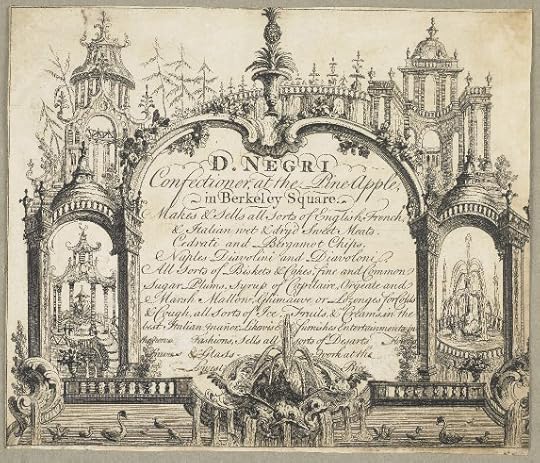 D. NEGRI
Confectioner, at the Pine Apple,
in Berkeley Square.
Makes & Sells all Sorts of English, French,
& Italian wet & dry'd Sweet Meats.
Cedrati and Bergamot Chips,
Naples Diavolini and Diavoloni.
All Sorts of Biskets & Cakes, fine and Common
Sugar Plums, Syrup of Capilaire, Orgeate and
Marsh Mallow, Ghimauve or Lozenges for Colds
& Cough, all Sorts of Ice Fruits & Creams in the
best Italian manner, Likewise furnishes Entertainments in
Fashions, Sells all sorts of Desarts
& Glass Work at the